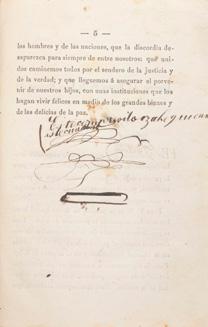 — 5 —
los hombres y de las naciones, que la discordia de-
saparezca para siempre de entre nosotros: que uni-
dos caminemos todos por el sendero de la justicia y
de la verdad; y que lleguemos á asegurar el porve-
nir de nuestros hijos, con unas instituciones que los
hagan vivir felices en medio de los grandes bienes y
de las delicias de la paz.